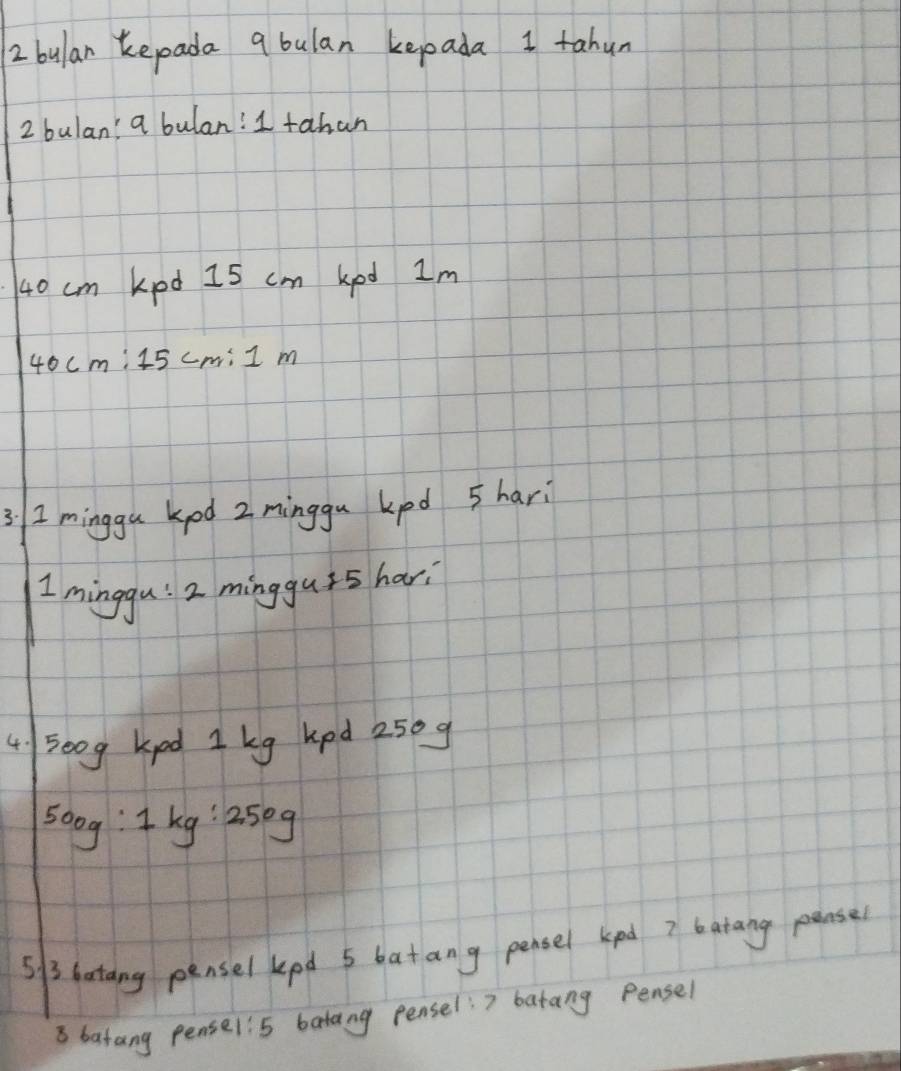 2 bulan kepada 9 bulan kepada 1 tahun
2 bulan : 9 bulan : 1 tahun
40 cm kpd 15 cm kpd 1 m
40 cm : 15 cm : 1 m
3. 1 minggu kpd 2 minggu kpd 5 hari
1 minggu : 2 minggu : 5 hari
4. 500g kpd 1 kg kpd 250 g
500g : 1 kg : 250g
5. 3 batang pensel kpd 5 batang pensel kpd 7 batang pensel
3 batang pensel : 5 batang pensel : 7 batang pensel